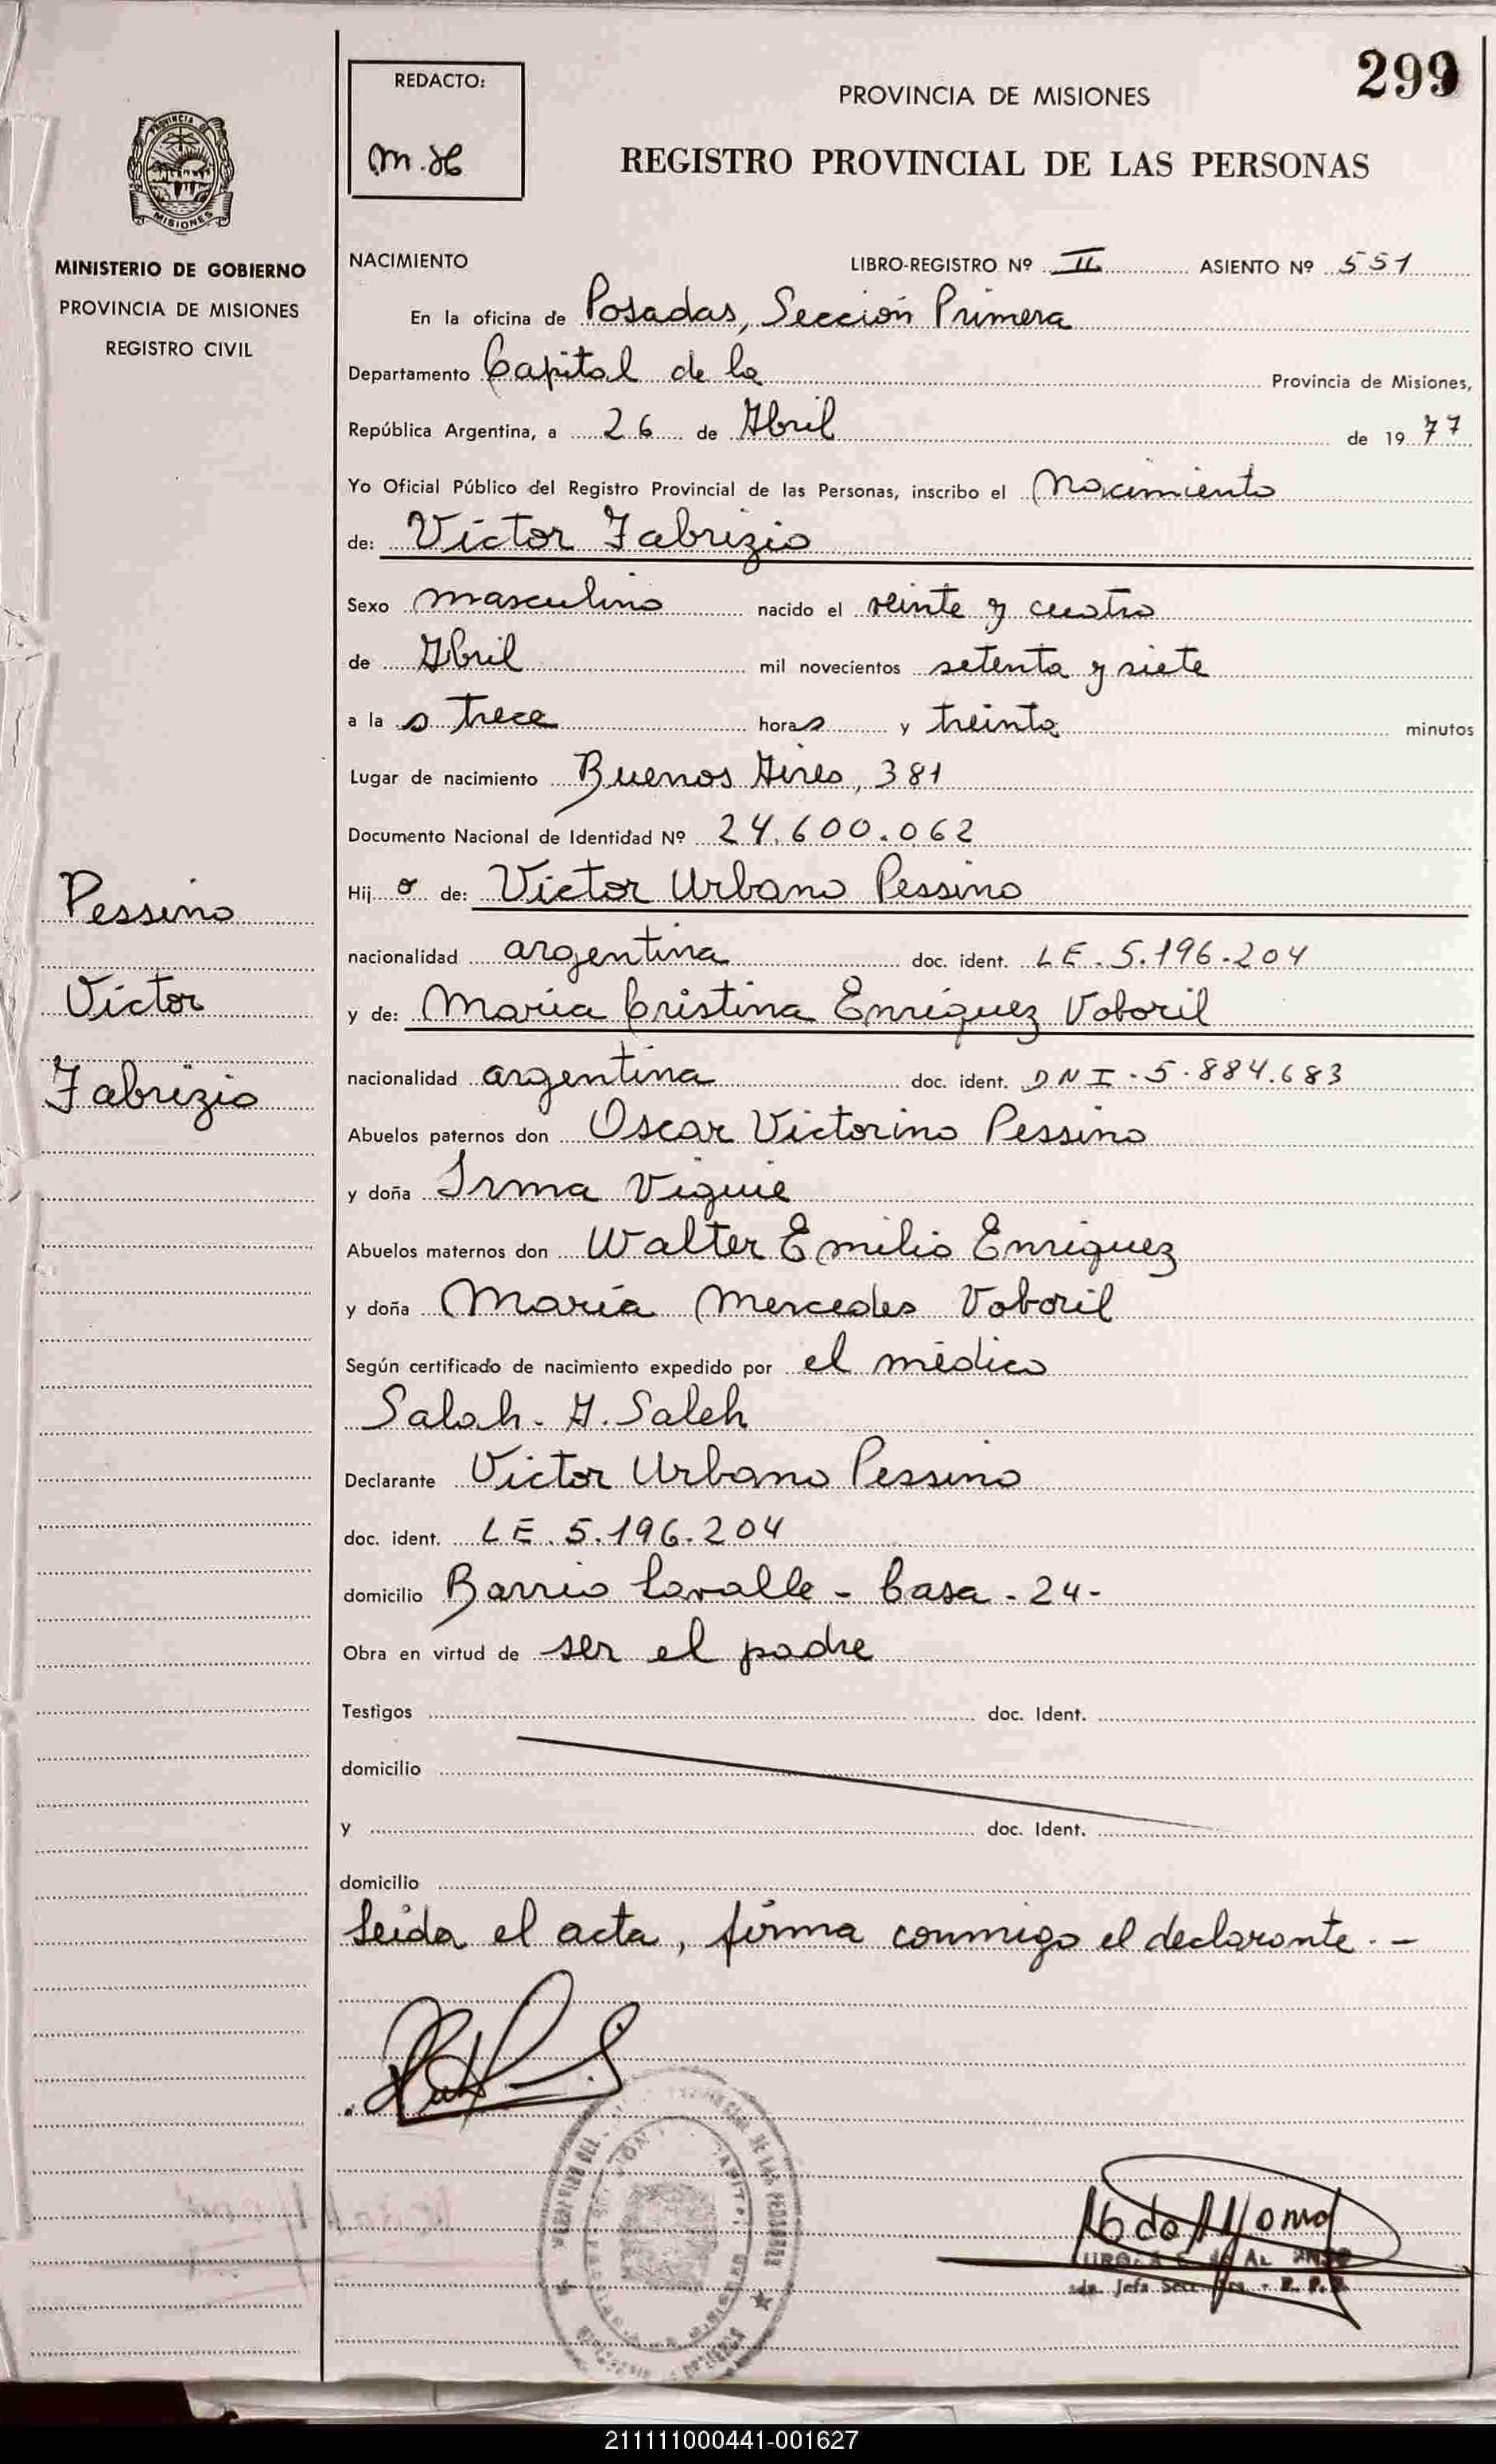 299
REDACTO:
m.H
PROVINCIA DE MISIONES
REGISTRO PROVINCIAL DE LAS PERSONAS
PROVINCIA DE
MISIONES
MINISTERIO DE GOBIERNO
PROVINCIA DE MISIONES
REGISTRO CIVIL
NACIMIENTO LIBRO-REGISTRO Nº II ASIENTO Nº 551
En la oficina de Posadas, Sección Primera
Departamento Capital de la Provincia de Misiones,
República Argentina, a 26 de Abril de 1977
Yo Oficial Público del Registro Provincial de las Personas, inscribo el Nacimiento
de: Víctor Fabrizio
Sexo masculino nacido el veinte y cuatro
de Abril mil novecientos setenta y siete
a la s trece horas y treinta minutos
Lugar de nacimiento Buenos Aires, 381
Documento Nacional de Identidad Nº 24.600.062
Hijo de: Víctor Urbano Pessino
nacionalidad argentina doc. ident. LE. 5.196.204
y de: María Cristina Enríquez Voboril
nacionalidad argentina doc. ident. DNI. 5.884.683
Abuelos paternos don Oscar Victorino Pessino
y doña Irma Viguie
Abuelos maternos don Walter Emilio Enríquez
y doña María Mercedes Voboril
Según certificado de nacimiento expedido por el médico
Salah. A. Saleh
Declarante Víctor Urbano Pessino
doc. ident. LE. 5.196.204
domicilio Barrio Lavalle - Casa - 24 -
Obra en virtud de ser el padre
Testigos doc. Ident.
domicilio
y doc. Ident.
domicilio
Leida el acta, firma conmigo el declarante. -
Pessino
Víctor
Fabrizio
211111000441-001627